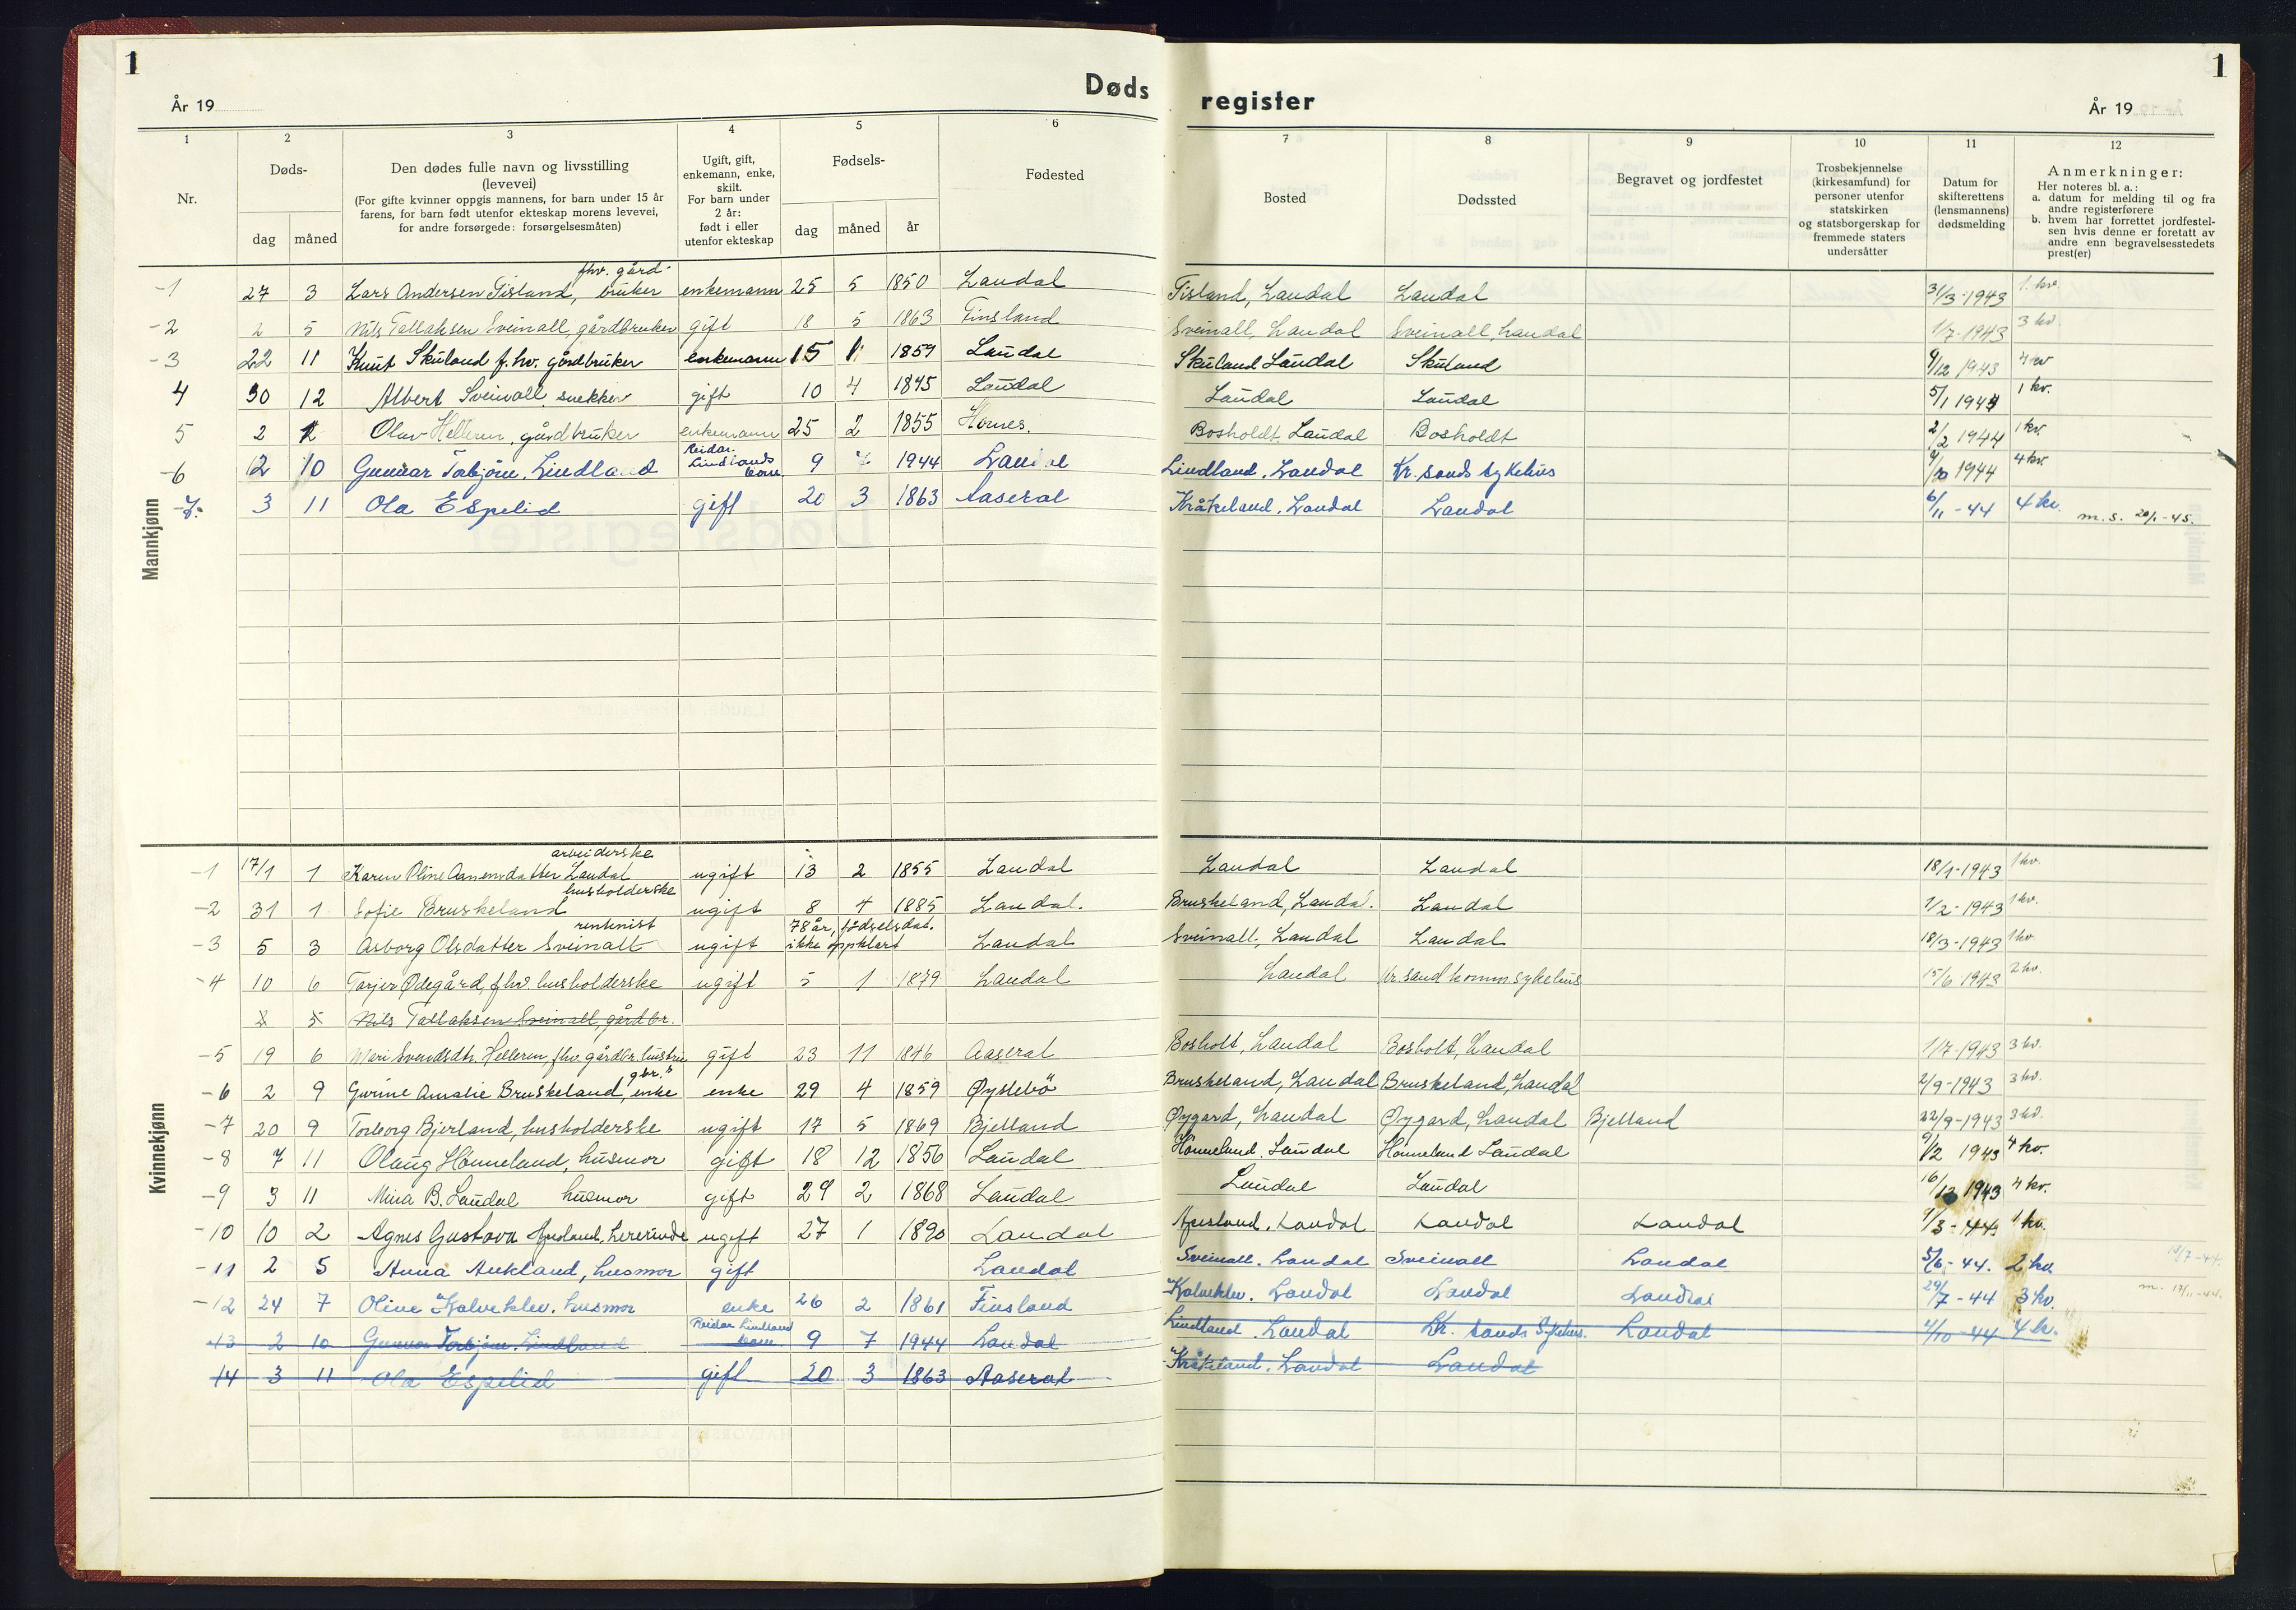 1
1
Døds
register
År 19
År 19
1 2 3 4 5 6 7 8 9 10 11 12
Nr.
Døds-
dag måned
Den dødes fulle navn og livsstilling
(levevei)
(For gifte kvinner oppgis mannens, for barn under 15 år
farens, for barn født utenfor ekteskap morens levevei,
for andre forsørgede: forsørgelsesmåten)
Ugift, gift,
enkemann, enke,
skilt.
For barn under
2 år:
født i eller
utenfor ekteskap
Fødsels-
dag måned år
Fødested
Bosted
Dødssted
Begravet og jordfestet
Trosbekjennelse
(kirkesamfund) for
personer utenfor
statskirken
og statsborgerskap for
fremmede staters
undersåtter
Datum for
skifterettens
(lensmannens)
dødsmelding
Anmerkninger:
Her noteres bl. a.:
a. datum for melding til og fra
andre registerførere
b. hvem har forrettet jordfestel-
sen hvis denne er foretatt av
andre enn begravelsesstedets
prest(er)
Mannkjønn
fhv. gård-
-1 27 3 Lars Andersen Tisland, bruker enkemann 25 5 1850 Laudal Tisland, Laudal Laudal 31/3-1943 1 kv.
-2 2 5 Nils Tallaksen Sveinall, gårdbruker gift 18 5 1863 Finsland Sveinall, Laudal Sveinall, Laudal 1/7-1943 3 kv.
-3 22 11 Knut Skuland f.hv. gårdbruker enkemann 15 1859 Laudal Skuland Laudal Skuland 9/12 1943 4 kv
4 30 12 Albert Sveivall, snekker gift 10 4 1845 Laudal Laudal Laudal 5/1 1944 1 kv.
5 2 Olav Helleren, gårdbruker enkemann 25 2 1855 Hornes. Bosholdt, Laudal Bosholdt 2/2 1944 1 kv.
Reidar
Lindlands
-6 12 10 Gunnar Torbjørn Lindland barn 9 7 1944 Laudal Lindland, Laudal Kr.sands sykehus 1944 4 kv.
-7. 3 11 Ola Espelid gift 20 3 1863 Aaseral Kråkeland, Laudal Laudal 6/11-44 4 kv. m.s. 20/1-45.
Kvinnekjønn
arbeiderske
-1 17/1 1 Karen Oline Aanensdatter Laudal ugift 13 2 1855 Laudal Laudal Laudal 18/1-1943 1 kv.
husholderske
-2 31 1 Sofie Bruskeland ugift 8 4 1885 Laudal. Bruskeland, Laudal. Laudal 1/2-1943 1 kv.
rentenist 78 år, fødselsdat.
-3 5 3 Asborg Olsdatter Sveinall ugift ikke oppklart Laudal Sveinall, Laudal Laudal 18/3-1943 1 kv.
-4 10 6 Tarjer Ødegård, fhv. husholderske ugift 5 1 1879 Laudal Laudal Kr.sand komm. sykehus 15/6-1943 2 kv.
2 5 Nils Tallaksen Sveinall, gårdbr.
-5 19 6 Mari Svendsdtr. Helleren, fhv. gårdbr. hustru gift 23 11 1846 Aaseral Bosholt, Laudal Bosholt, Laudal 1/7-1943 3 kv.
gbr.s
-6 2 9 Gurine Amalie Bruskeland, enke enke 29 4 1859 Øyslebö Bruskeland, Laudal Bruskeland, Laudal 2/9-1943 3 kv.
-7 20 9 Torborg Bjerland, husholderske ugift 17 5 1869 Bjelland Øygard, Laudal Øygard, Laudal Bjelland 22/9-1943 3 kv.
-8 7 11 Olaug Hønneland, husmor gift 18 12 1856 Laudal Hønneland, Laudal Hønneland Laudal 9/12 1943 4 kv.
-9 3 11 Mina B. Laudal husmor gift 29 2 1868 Laudal Laudal Laudal 16/12 1943 4 kv.
-10 10 2 Agnes Gustava Apesland, lærerinde ugift 27 1 1890 Laudal Apesland, Laudal Laudal Laudal 1/3-44 1 kv.
-11 2 5 Anna Aukland, husmor gift Laudal Sveinall, Laudal Sveinall Laudal 5/6-44. 2 kv. 18/7-44.
-12 24 7 Oline Kalveklev, husmor enke 26 2 1861 Finsland Kalveklev, Laudal Laudal Laudal 29/7-44 3 kv. m. 17/11-44.
Reidar Lindland
13 2 10 Gunnar Torbjørn Lindland barn 9 7 1944 Laudal Lindland, Laudal Kr. sands Sykehus. Laudal 4/10-44 4 kv.
14 3 11 Ola Espelid gift 20 3 1863 Aaseral Kråkeland, Laudal Laudal